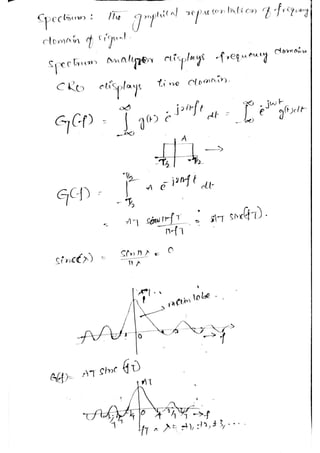 Spectrum: The graphical representation of frequency
domain of signal.
Spectrum analyzer displays frequency domain
CRO displays time domain.
G(f) = ∫_{-∞}^{∞} g(t) e^{-j2πft} dt = ∫_{-∞}^{∞} e^{-jωt} g(t) dt
A
-T/2 T/2
G(f) = ∫_{-T/2}^{T/2} A e^{-j2πft} dt
= AT sin πfT / πfT = AT sinc(fT).
sinc(λ) = sin πλ / πλ = 0
main lobe.
0 f
G(f) = AT sinc (fT)
AT
0 f
fT = λ = ±1, ±2, ±3, ....